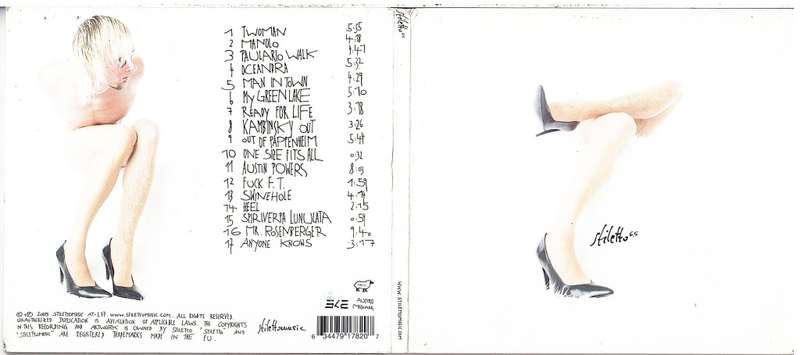 1 TWOMAN 5:55
2 MANOLO 4:18
3 PAULARIO WALK
4 OCEANDRA 5:32
5 MAN IN TOWN 4:29
6 MY GREEN LAKE 5:10
7 READY FOR LIFE 3:18
8 KAMPINSKY OUT 3:26
9 OUT OF PAPPENHEIM
10 ONE SIZE FITS ALL 0:32
11 AUSTIN POWERS
12 FUCK F.T. 1:59
13 SWINEHOLE
14 HEEL 2:15
15 SHRIVERPA LUNULATA 0:59
16 MR. ROSENBERGER 9:40
17 ANYONE KNOWS 3:17
WWW.STILETTOMUSIC.COM. ALL RIGHTS RESERVED.
UNAUTHORIZED DUPLICATION IS A VIOLATION OF APPLICABLE LAWS. THE COPYRIGHTS
IN THIS RECORDING AND ARTWORKS IS OWNED BY STILETTO. "STILETTO" AND
"STILETTOMUSIC" ARE REGISTERED TRADEMARKS MADE IN THE EU.
stilettomusic
6 34479 17820 7
stiletto
www.stilettomusic.com
stiletto